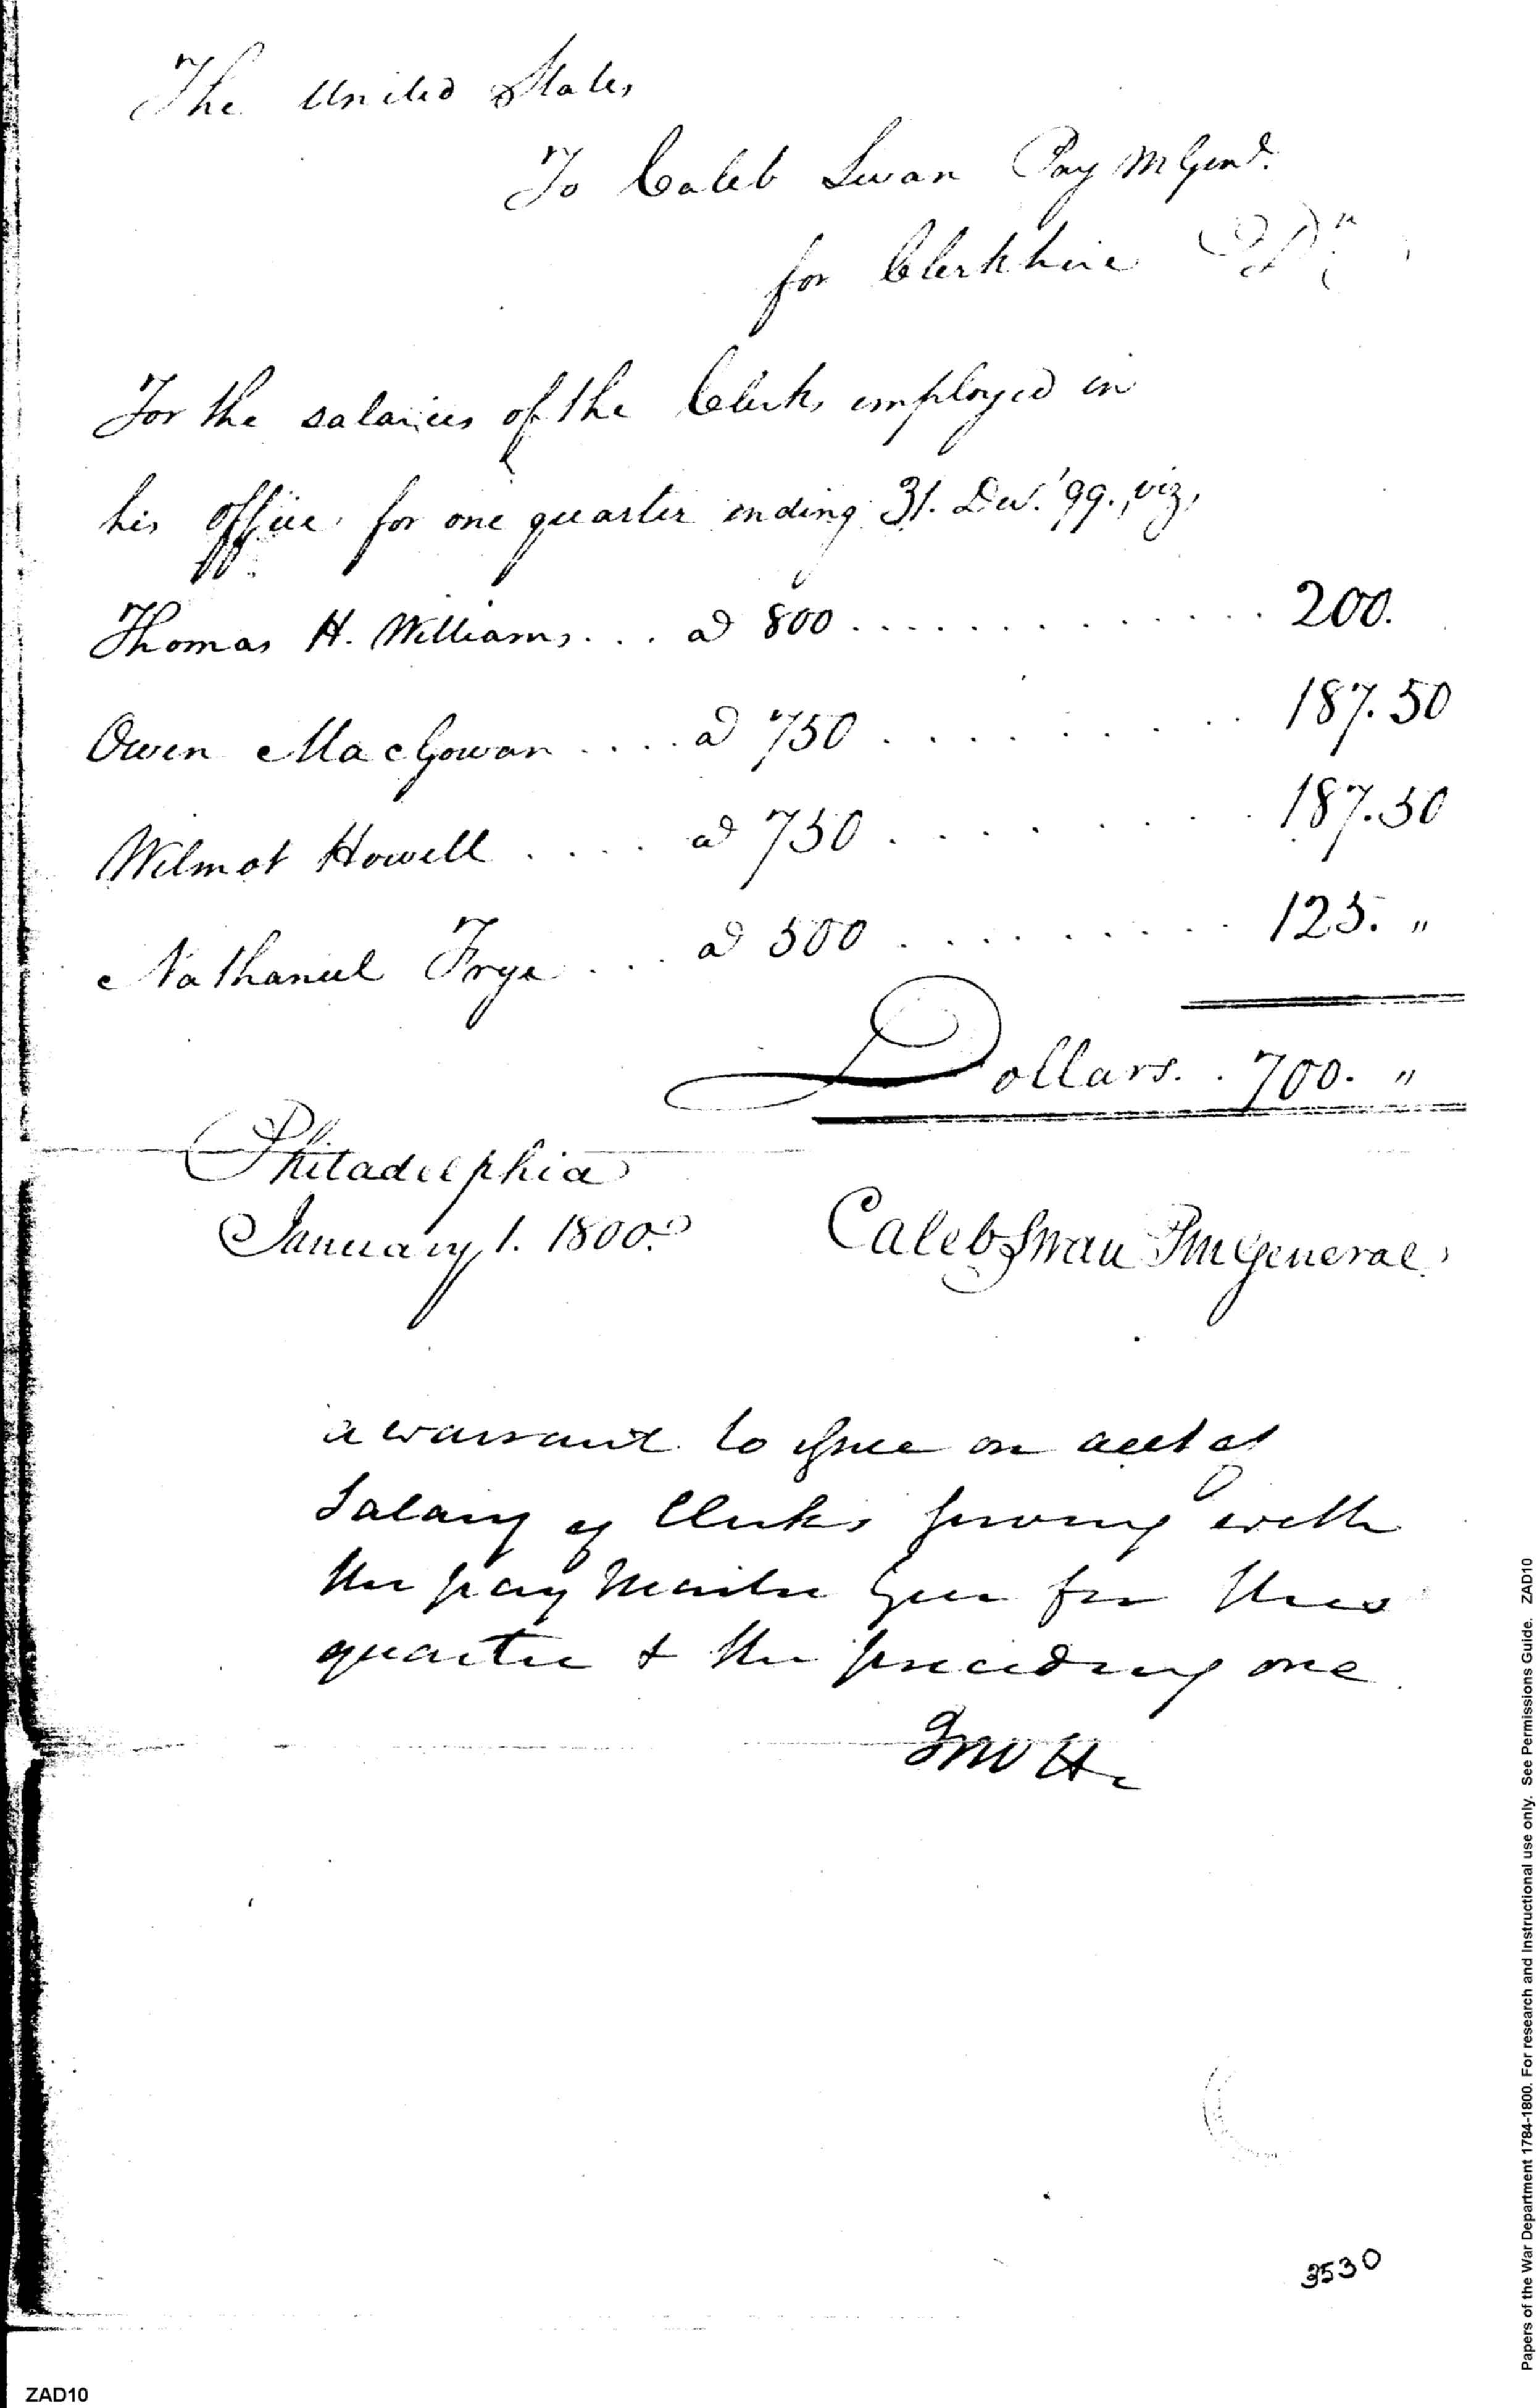 The United States
To Caleb Swan Pay M Genl.
for Clerkhire Dr.
For the salaries of the Clerks employed in
his office for one quarter ending 31. Dec. '99., viz,
Thomas H. Williams . . . ad 800 . . . . . . . . . . . . . 200.
Owen MacGowan . . . . ad 750 . . . . . . . . . 187.50
Wilmot Howell . . . . ad 750 . . . . . . . . . 187.50
Nathaniel Frye . . . ad 500 . . . . . . . . . 125. "
Dollars. . 700. "
Philadelphia
January 1. 1800.
Caleb Swan PmGeneral.
a warrant to issue on acct of
Salary of Clerks serving with
the pay Master Gen for this
quarter & the preceding one
3530
ZAD10
Papers of the War Department 1784-1800. For research and Instructional use only. See Permissions Guide. ZAD10